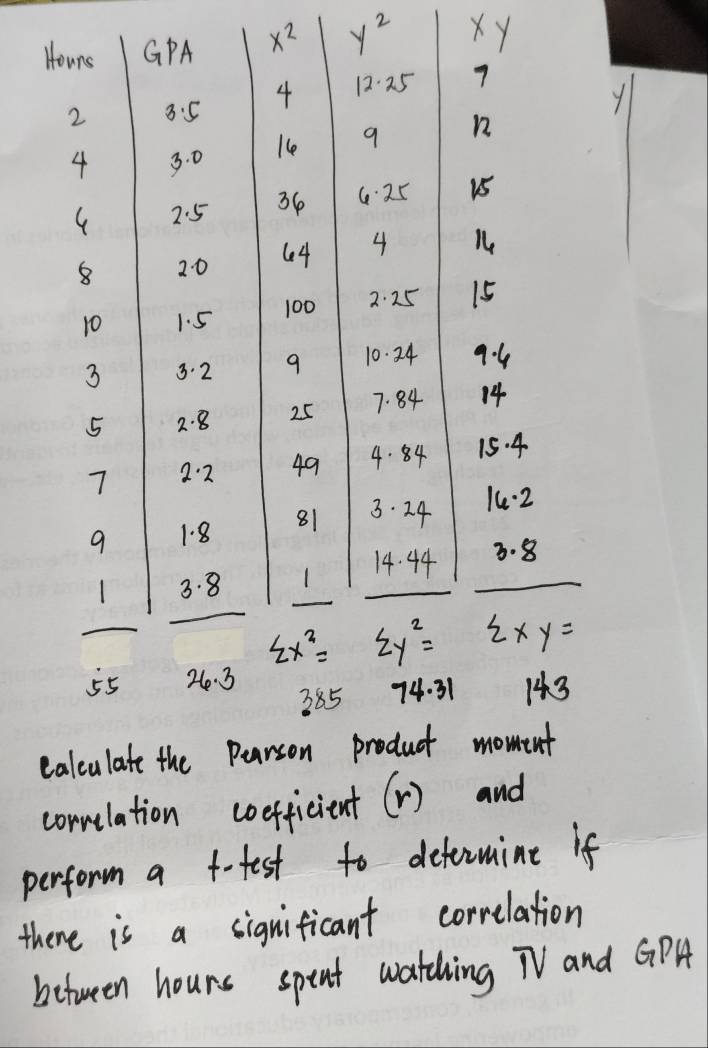 Hours GPA x² y² xy
2 3.5 4 12.25 7
4 3.0 16 9 12
6 2.5 36 6.25 15
8 2.0 64 4 16
10 1.5 100 2.25 15
3 3.2 9 10.24 9.6
5 2.8 25 7.84 14
7 2.2 49 4.84 15.4
9 1.8 81 3.24 16.2
1 3.8 1 14.44 3.8
Σx² = Σy² = Σxy =
55 26.3 385 74.31 143
Calculate the Pearson product moment
correlation coefficient (r) and
perform a t-test to determine if
there is a significant correlation
between hours spent watching TV and GPA